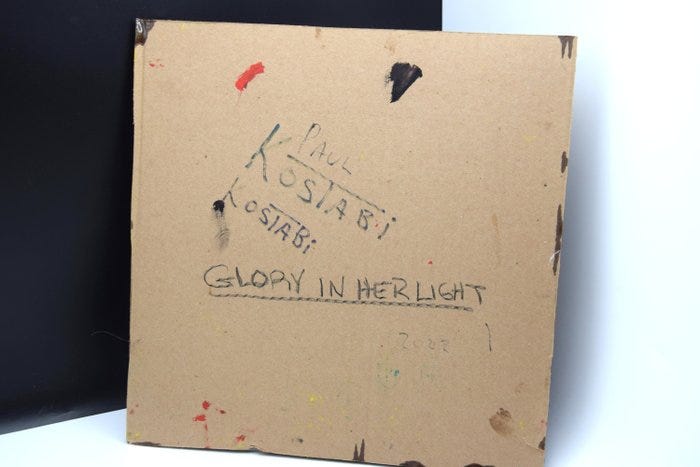 PAUL
KOSTABi
KOSTABi
GLORY IN HER LIGHT
2022